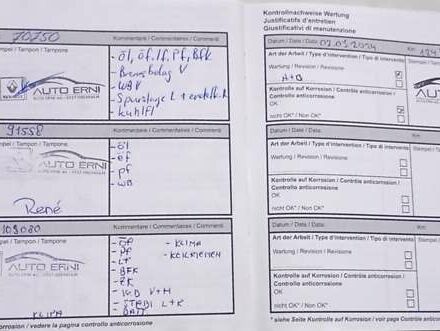 70750
Stempel / Tampon / Tampone
Kommentare / Commentaires / Commenti
- öl, öf. lf, Pf, BFK
- Bremsbelag V
AUTO ERNI
91558
Stempel / Tampon / Tampone
Kommentare / Commentaires / Commenti
- öl
- öf
- Pf
AUTO ERNI
René
109080
Stempel / Tampon / Tampone
Kommentare / Commentaires / Commenti
- KLIMA
- PF
- BFK
AUTO ERNI
- STABI L+R
- BATT
KLIMA
Kontrollnachweise Wartung
Justificatifs d'entretien
Giustificativi di manutenzione
Datum / Date / Data
Km
Art der Arbeit / Type d'intervention / Tipo di intervento
Wartung / Revision / Revisione
A+B
Kontrolle auf Korrosion / Contrôle anticorrosion /
Controllo anticorrosione
OK
nicht OK* / Non OK*
Datum / Date / Data
Km
Art der Arbeit / Type d'intervention / Tipo di intervento
Wartung / Revision / Revisione
Kontrolle auf Korrosion / Contrôle anticorrosion /
Controllo anticorrosione
OK
nicht OK* / Non OK*
Datum / Date / Data
Km
Art der Arbeit / Type d'intervention / Tipo di intervento
Wartung / Revision / Revisione
Kontrolle auf Korrosion / Contrôle anticorrosion /
Controllo anticorrosione
OK
nicht OK* / Non OK*
* siehe Seite Kontrolle auf Korrosion / voir page Contrôle
vedere la pagina controllo anticorrosione